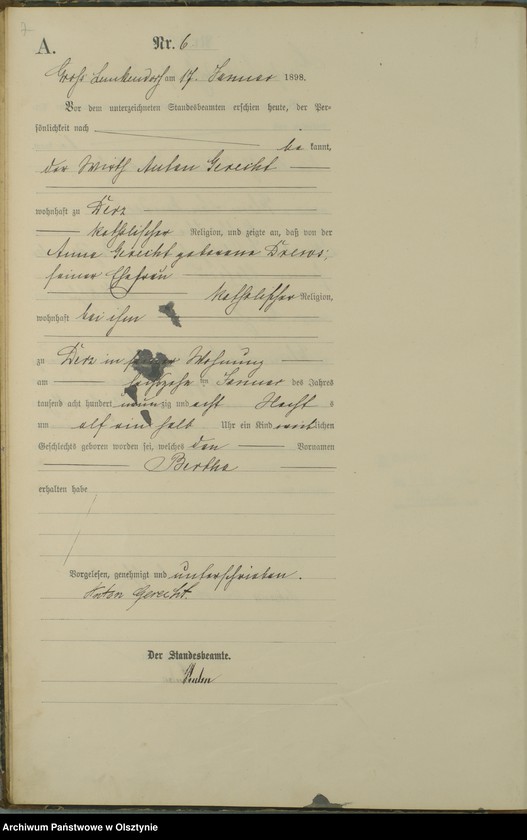 7.
A.
Nr. 6
Groß Lemkendorf am 17. Januar 1898.
Vor dem unterzeichneten Standesbeamten erschien heute, der Per-
sönlichkeit nach
be kannt,
der Wirth Anton Gerecht
wohnhaft zu Derz
katholischer Religion, und zeigte an, daß von der
Anna Gerecht geborene Drews,
seiner Ehefrau
katholischer Religion,
wohnhaft bei ihm
zu Derz in seiner Wohnung
am sechszehn ten Januar des Jahres
tausend acht hundert neunzig und acht Nacht s
um elf ein halb Uhr ein Kind weiblichen
Geschlechts geboren worden sei, welches den Vornamen
Bertha
erhalten habe
Vorgelesen, genehmigt und unterschrieben.
Anton Gerecht.
Der Standesbeamte.
Archiwum Państwowe w Olsztynie